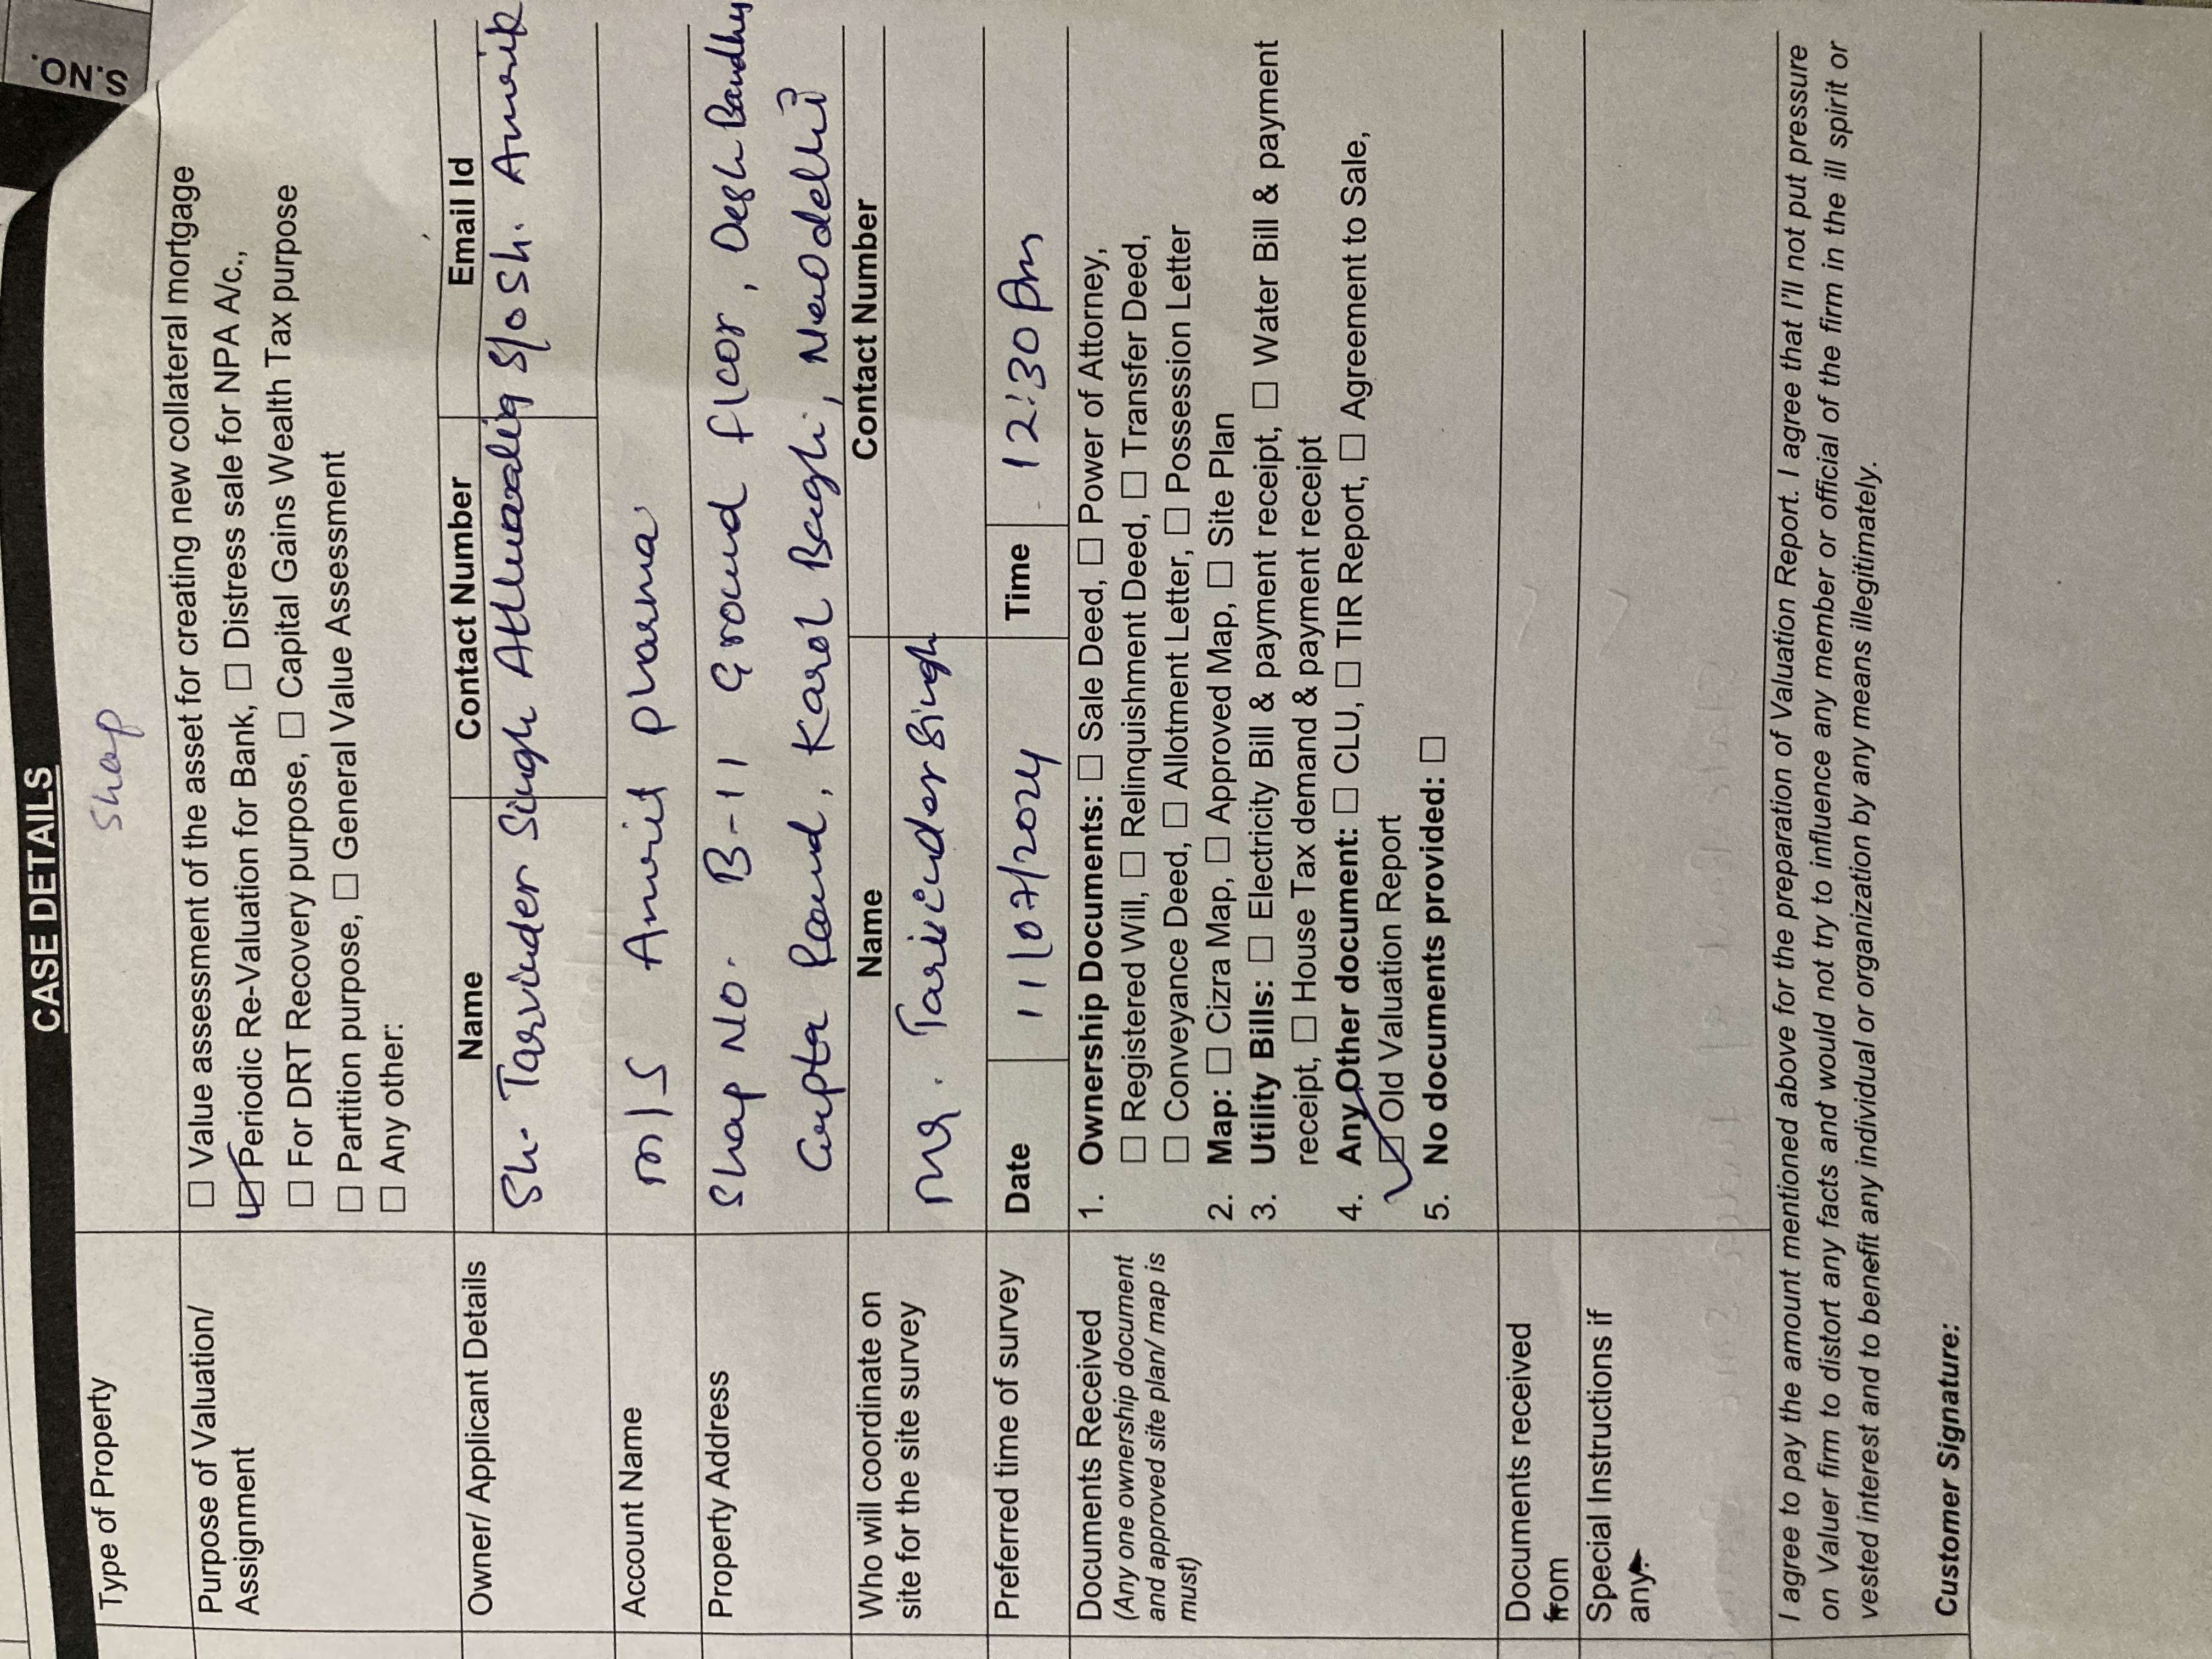 S.NO.
CASE DETAILS
Type of Property
Shop
Purpose of Valuation/
Assignment
☐ Value assessment of the asset for creating new collateral mortgage
☑ Periodic Re-Valuation for Bank, ☐ Distress sale for NPA A/c.,
☐ For DRT Recovery purpose, ☐ Capital Gains Wealth Tax purpose
☐ Partition purpose, ☐ General Value Assessment
☐ Any other:
Owner/ Applicant Details
Name Contact Number Email Id
Sh. Tarvinder Singh Ahluwalia S/o Sh. Amrik
Account Name
M/S Amrit pharma
Property Address
Shop No. B-11 Ground floor, Desh Bandhu
Gupta Road, Karol Bagh, New delhi
Who will coordinate on
site for the site survey
Name Contact Number
Mr. Tarvinder Singh
Preferred time of survey
Date 11/07/2024 Time 12:30 Pm
Documents Received
(Any one ownership document
and approved site plan/ map is
must)
1. Ownership Documents: ☐ Sale Deed, ☐ Power of Attorney,
☐ Registered Will, ☐ Relinquishment Deed, ☐ Transfer Deed,
☐ Conveyance Deed, ☐ Allotment Letter, ☐ Possession Letter
2. Map: ☐ Cizra Map, ☐ Approved Map, ☐ Site Plan
3. Utility Bills: ☐ Electricity Bill & payment receipt, ☐ Water Bill & payment
receipt, ☐ House Tax demand & payment receipt
4. Any Other document: ☐ CLU, ☐ TIR Report, ☐ Agreement to Sale,
☑ Old Valuation Report
5. No documents provided: ☐
Documents received
from
Special Instructions if
any:
I agree to pay the amount mentioned above for the preparation of Valuation Report. I agree that I'll not put pressure
on Valuer firm to distort any facts and would not try to influence any member or official of the firm in the ill spirit or
vested interest and to benefit any individual or organization by any means illegitimately.
Customer Signature: